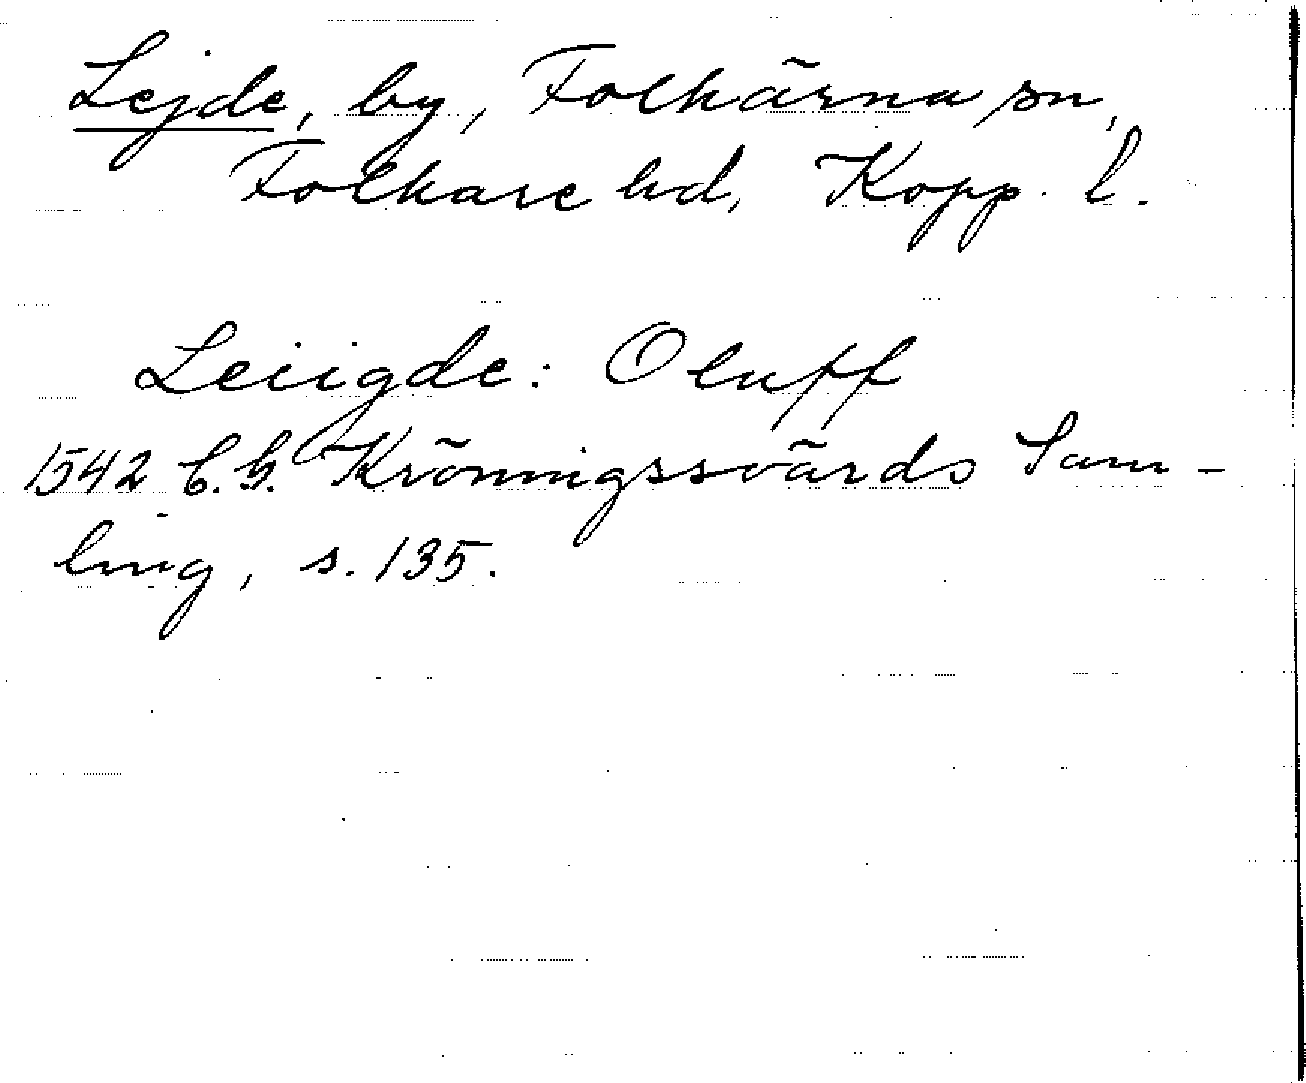 Lejde, by, Folkärna sn,
Folkare hd, Kopp. l.
Leiigde: Oluff
1542 C.G. Kröningssvärds Sam-
ling, s. 135.